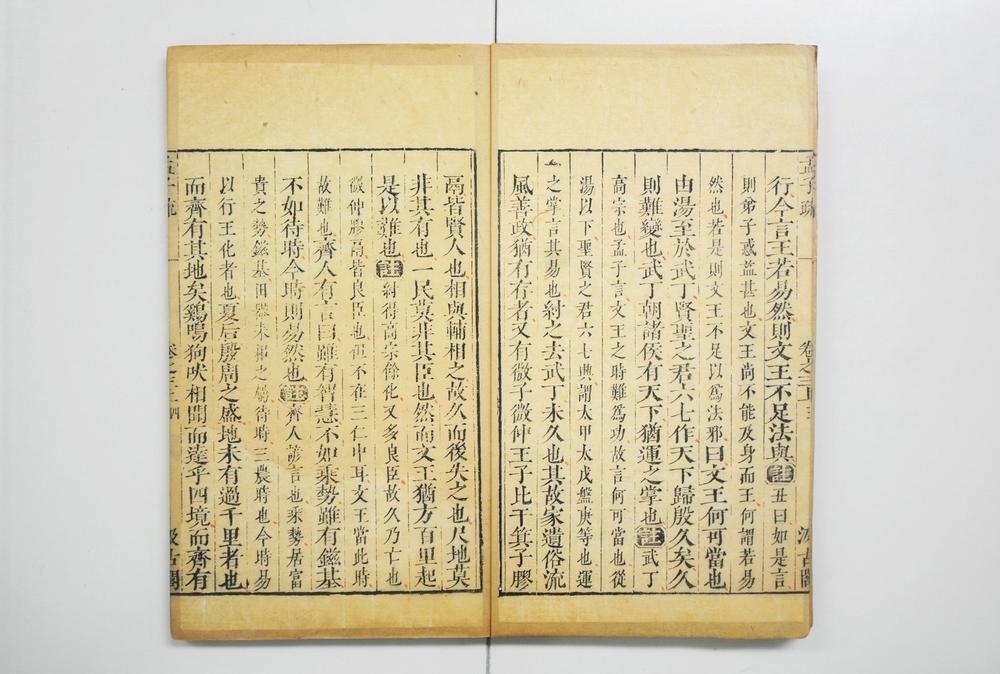 行今言王若易然則文王不足法與註丑曰如是言
則弟子惑益甚也文王尚不能及身而王何謂若易
然也若是則文王不足以爲法邪曰文王何可當也
由湯至於武丁賢聖之君六七作天下歸殷久矣久
則難變也武丁朝諸侯有天下猶運之掌也註武丁
高宗也孟子言文王之時難爲功故言何可當也從
湯以下聖賢之君六七興謂太甲太戊盤庚等也運
之掌言其易也紂之去武丁未久也其故家遺俗流
風善政猶有存者又有微子微仲王子比干箕子膠
鬲皆賢人也相與輔相之故久而後失之也尺地莫
非其有也一民莫非其臣也然而文王猶方百里起
是以難也註紂得高宗餘化又多良臣故久乃亡也
微仲膠鬲皆良臣也但不在三仁中耳文王當此時
故難也齊人有言曰雖有智慧不如乘勢雖有鎡基
不如待時今時則易然也註齊人諺言也乘勢居富
貴之勢鎡基田器耒耜之屬待時三農時也今時易
以行王化者也夏后殷周之盛地未有過千里者也
而齊有其地矣鷄鳴狗吠相聞而達乎四境而齊有
孟子疏
卷之三上
汲古閣